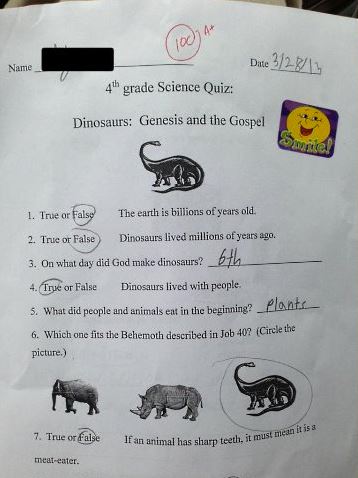 100 A+
Name
Date 3/28/13
4th grade Science Quiz:
Dinosaurs: Genesis and the Gospel
Smile!
1. True or False The earth is billions of years old.
2. True or False Dinosaurs lived millions of years ago.
3. On what day did God make dinosaurs? 6th
4. True or False Dinosaurs lived with people.
5. What did people and animals eat in the beginning? Plants
6. Which one fits the Behemoth described in Job 40? (Circle the
picture.)
7. True or False If an animal has sharp teeth, it must mean it is a
meat-eater.